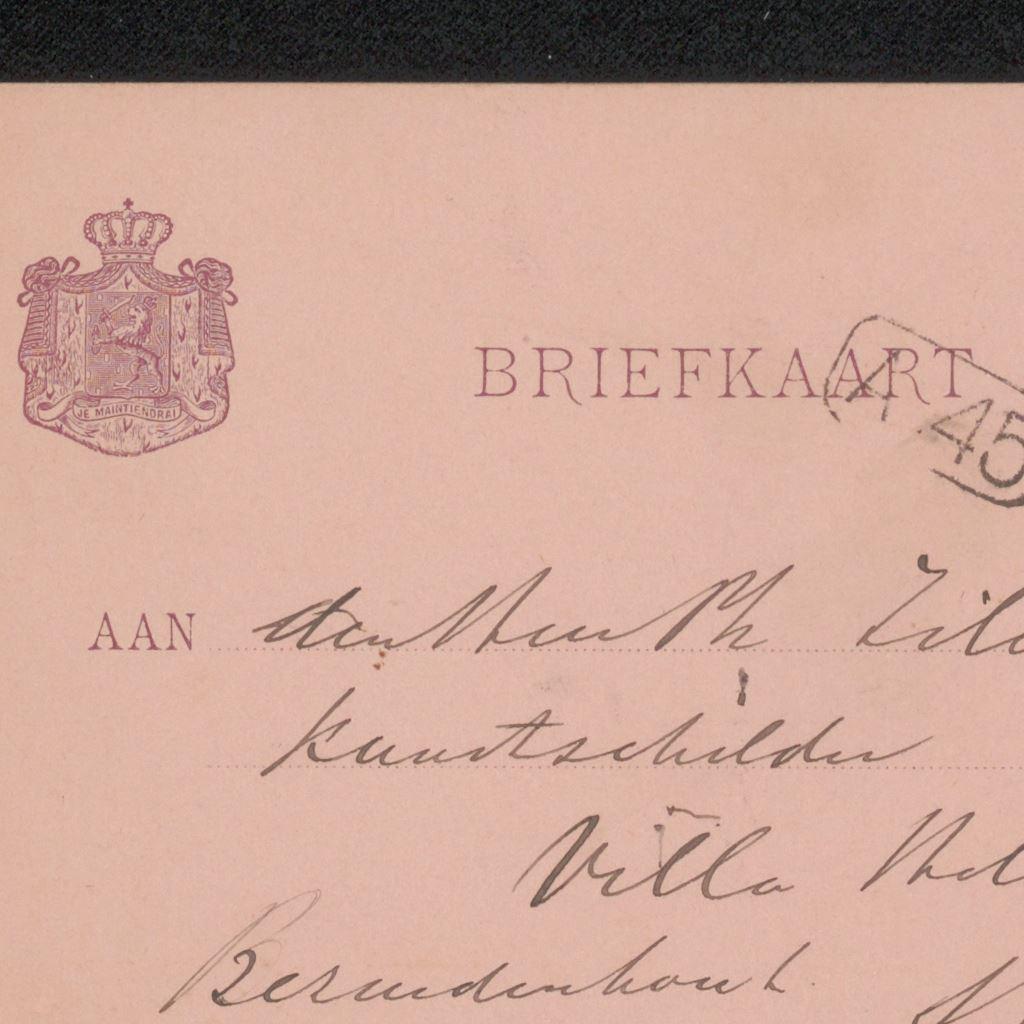 JE MAINTIENDRAI
BRIEFKAART
A 45
AAN den Heer Ph Zil
Kunstschilder
Villa Hel
Bezuidenhout.